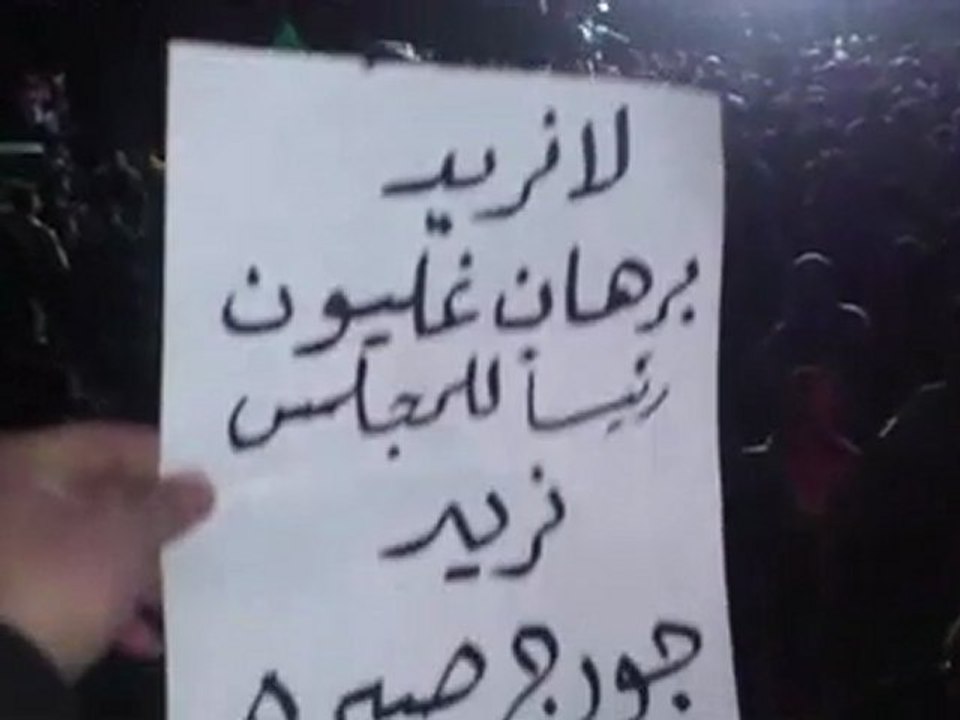 لا نريد
برهان غليون
رئيساً للمجلس
نريد
جورج صبره